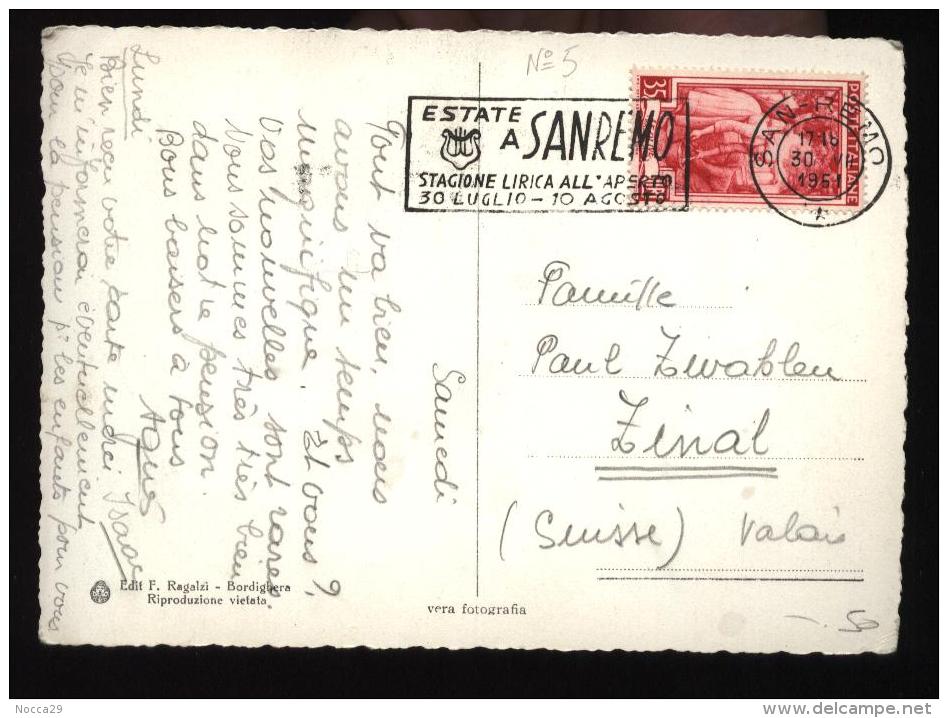 Nº 5
ESTATE
A SANREMO
STAGIONE LIRICA ALL'APERTO
30 LUGLIO - 10 AGOSTO
35
POSTE ITALIANE
SAN-REMO
17-18
30 VII
1951
Samedi
Tout va bien, nous
avons un temps
magnifique. Et vous ?,
Vos nouvelles sont rares.
Nous sommes très très bien
dans notre pension.
Bons baisers à tous
Agnès
Isaac
Lundi
Bien reçu votre carte merci
Je m'informerai éventuellement
pour la pension p. les enfants pour vous
Famille
Paul Zwahlen
Zinal
(Suisse) Valais
-.50
Edit F. Ragalzi - Bordighera
Riproduzione vietata
vera fotografia
Nocca29
delcampe.net